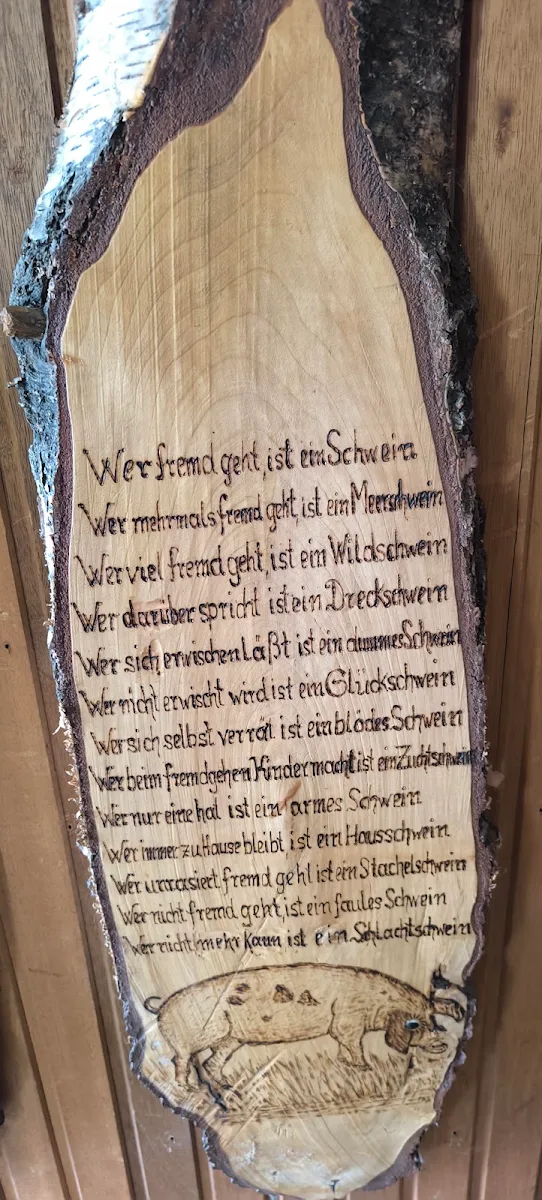 Wer fremd geht, ist ein Schwein
Wer mehrmals fremd geht, ist ein Meerschwein
Wer viel fremd geht, ist ein Wildschwein
Wer darüber spricht ist ein Dreckschwein
Wer sich erwischen läßt ist ein dummes Schwein
Wer nicht erwischt wird ist ein Glückschwein
Wer sich selbst verrät ist ein blödes Schwein
Wer beim fremdgehen Kinder macht ist ein Zuchtschwein
Wer nur eine hat ist ein armes Schwein
Wer immer zu Hause bleibt ist ein Hausschwein
Wer unrasiert fremd geht ist ein Stachelschwein
Wer nicht fremd geht, ist ein faules Schwein
Wer nicht mehr kann ist ein Schlachtschwein